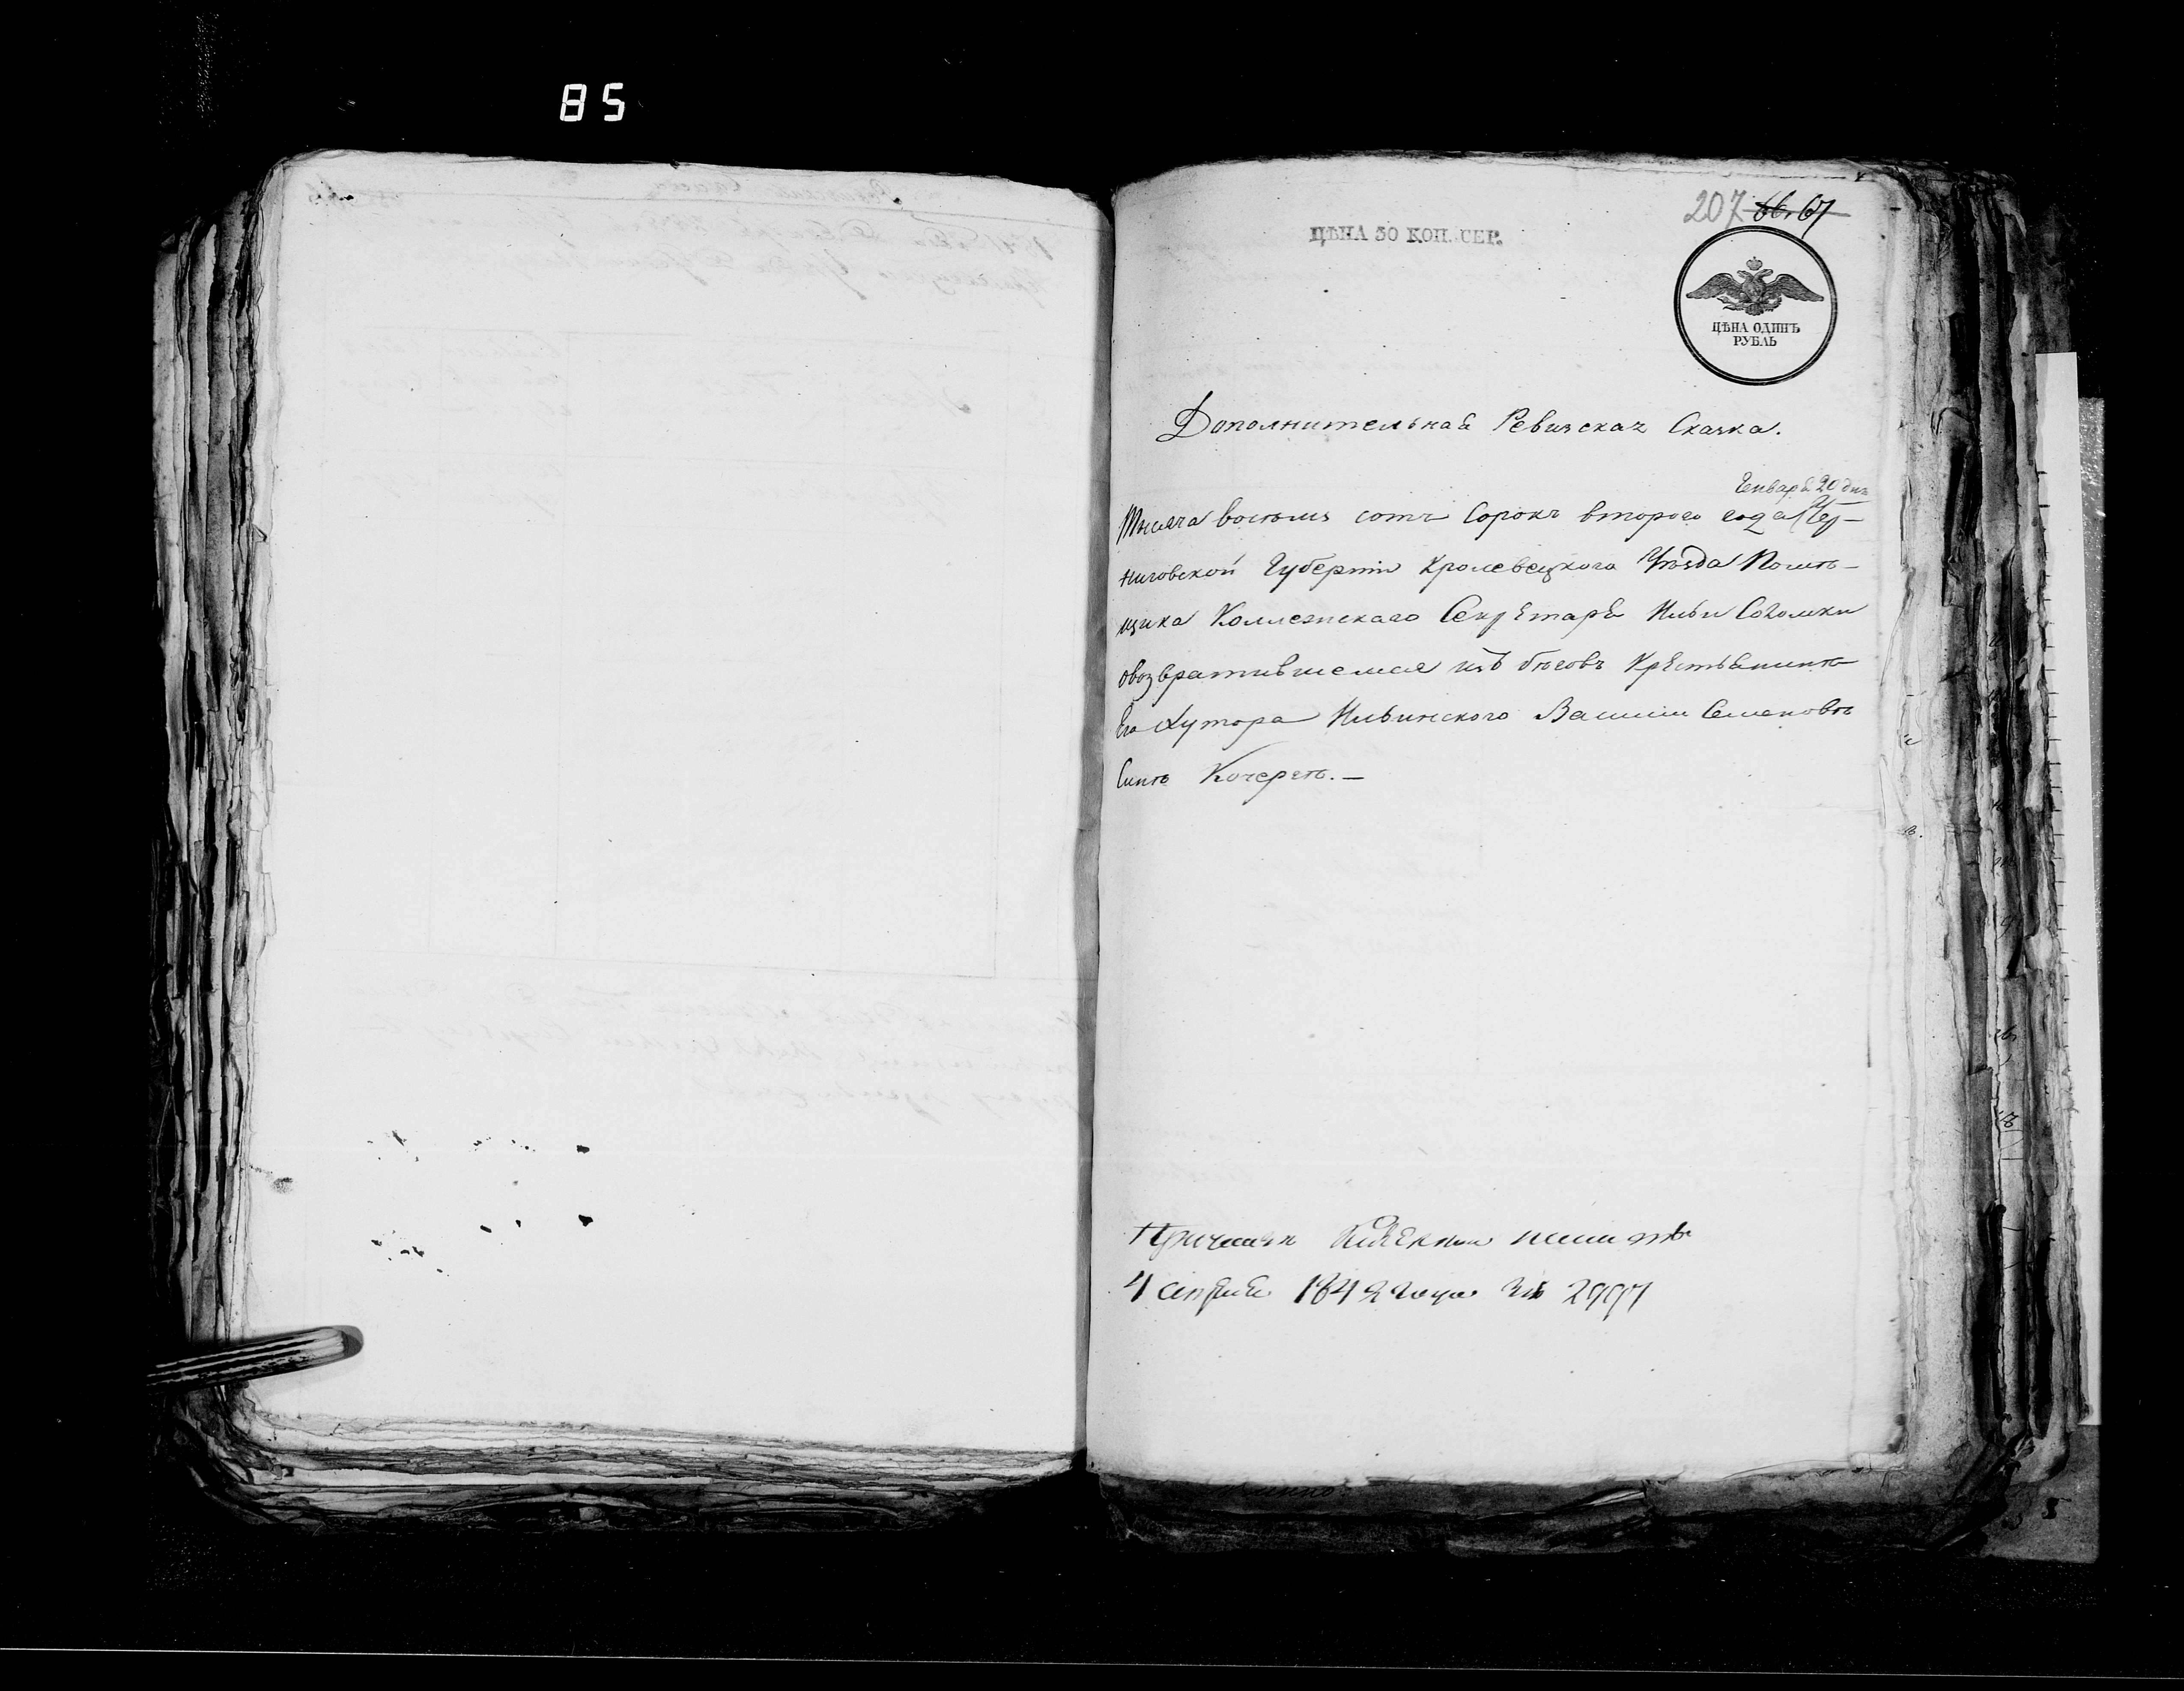 85
207 66. 67
ЦѢНА 30 КОП. СЕР.
ЦѢНА ОДИНЪ
РУБЛЬ
Дополнительная Ревизская Сказка.
Генваря 20 дня
Тысяча восемь сотъ сорокъ второго года Чер-
ниговской Губерніи Кролевецкого Уѣзда Помѣ-
щика Коллежскаго Секретаря Ильи
овозвратившемся изъ бѣговъ Крестьянинѣ
Его Хутора Ильинского Василии Семеновѣ
Сынѣ Кочергѣ.—
при
4 апреля 1842 года № 2997